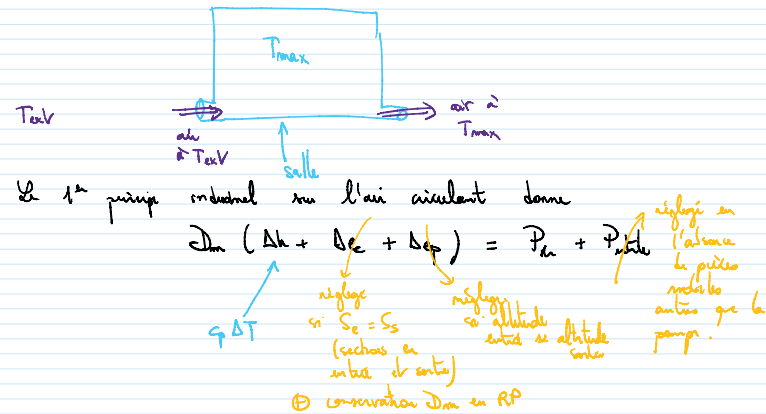 Tmax
Text
air
à Text
air à
Tmax
salle
Le 1er princip industriel sur l'air circulant donne
Dm ( Δh + Δec + Δep ) = Pth + Putile
cp ΔT
négligé
si Se = Ss
(sections en
entrée et sortie)
⊕ conservation Dm en RP
négligé
si altitude
entrée = altitude
sortie
négligé en
l'absence
de pièces
mobiles
autres que la
pompe.